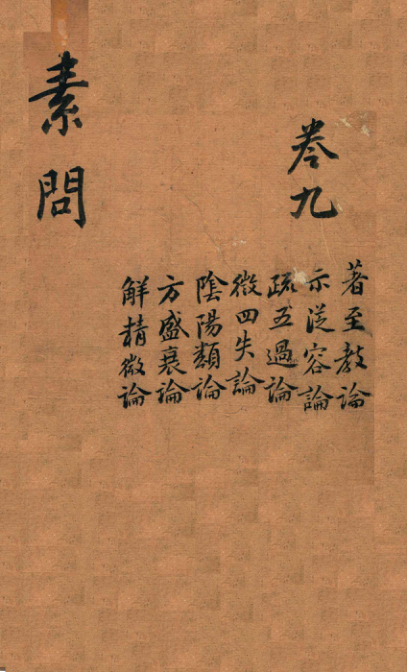 素問
卷九
著至教論
示從容論
疏五過論
徵四失論
陰陽類論
方盛衰論
解精微論